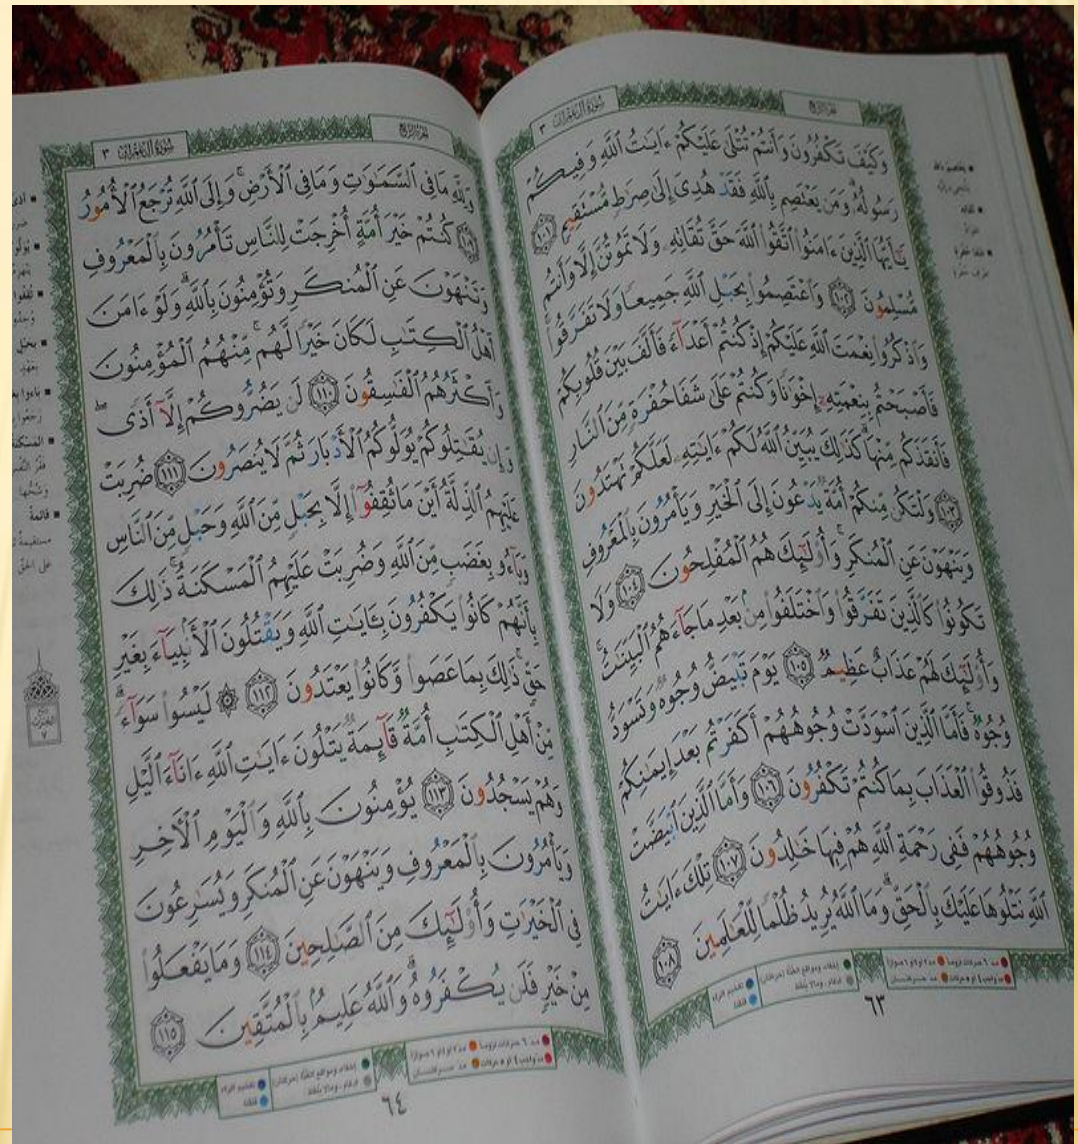 سورة آل عمران ٣
الجزء الرابع
وَكَيْفَ تَكْفُرُونَ وَأَنتُمْ تُتْلَىٰ عَلَيْكُمْ ءَايَٰتُ ٱللَّهِ وَفِيكُمْ
رَسُولُهُۥ وَمَن يَعْتَصِم بِٱللَّهِ فَقَدْ هُدِىَ إِلَىٰ صِرَٰطٍ مُّسْتَقِيمٍ ١٠١
يَٰٓأَيُّهَا ٱلَّذِينَ ءَامَنُوا۟ ٱتَّقُوا۟ ٱللَّهَ حَقَّ تُقَاتِهِۦ وَلَا تَمُوتُنَّ إِلَّا وَأَنتُم
مُّسْلِمُونَ ١٠٢ وَٱعْتَصِمُوا۟ بِحَبْلِ ٱللَّهِ جَمِيعًا وَلَا تَفَرَّقُوا۟
وَٱذْكُرُوا۟ نِعْمَتَ ٱللَّهِ عَلَيْكُمْ إِذْ كُنتُمْ أَعْدَآءً فَأَلَّفَ بَيْنَ قُلُوبِكُمْ
فَأَصْبَحْتُم بِنِعْمَتِهِۦٓ إِخْوَٰنًا وَكُنتُمْ عَلَىٰ شَفَا حُفْرَةٍ مِّنَ ٱلنَّارِ
فَأَنقَذَكُم مِّنْهَا كَذَٰلِكَ يُبَيِّنُ ٱللَّهُ لَكُمْ ءَايَٰتِهِۦ لَعَلَّكُمْ تَهْتَدُونَ
١٠٣ وَلْتَكُن مِّنكُمْ أُمَّةٌ يَدْعُونَ إِلَى ٱلْخَيْرِ وَيَأْمُرُونَ بِٱلْمَعْرُوفِ
وَيَنْهَوْنَ عَنِ ٱلْمُنكَرِ وَأُو۟لَٰٓئِكَ هُمُ ٱلْمُفْلِحُونَ ١٠٤ وَلَا
تَكُونُوا۟ كَٱلَّذِينَ تَفَرَّقُوا۟ وَٱخْتَلَفُوا۟ مِنۢ بَعْدِ مَا جَآءَهُمُ ٱلْبَيِّنَٰتُ
وَأُو۟لَٰٓئِكَ لَهُمْ عَذَابٌ عَظِيمٌ ١٠٥ يَوْمَ تَبْيَضُّ وُجُوهٌ وَتَسْوَدُّ
وُجُوهٌ فَأَمَّا ٱلَّذِينَ ٱسْوَدَّتْ وُجُوهُهُمْ أَكَفَرْتُم بَعْدَ إِيمَٰنِكُمْ
فَذُوقُوا۟ ٱلْعَذَابَ بِمَا كُنتُمْ تَكْفُرُونَ ١٠٦ وَأَمَّا ٱلَّذِينَ ٱبْيَضَّتْ
وُجُوهُهُمْ فَفِى رَحْمَةِ ٱللَّهِ هُمْ فِيهَا خَٰلِدُونَ ١٠٧ تِلْكَ ءَايَٰتُ
ٱللَّهِ نَتْلُوهَا عَلَيْكَ بِٱلْحَقِّ وَمَا ٱللَّهُ يُرِيدُ ظُلْمًا لِّلْعَٰلَمِينَ ١٠٨
٦٣
سورة آل عمران ٣
الجزء الرابع
وَلِلَّهِ مَا فِى ٱلسَّمَٰوَٰتِ وَمَا فِى ٱلْأَرْضِ وَإِلَى ٱللَّهِ تُرْجَعُ ٱلْأُمُورُ
١٠٩ كُنتُمْ خَيْرَ أُمَّةٍ أُخْرِجَتْ لِلنَّاسِ تَأْمُرُونَ بِٱلْمَعْرُوفِ
وَتَنْهَوْنَ عَنِ ٱلْمُنكَرِ وَتُؤْمِنُونَ بِٱللَّهِ وَلَوْ ءَامَنَ
أَهْلُ ٱلْكِتَٰبِ لَكَانَ خَيْرًا لَّهُم مِّنْهُمُ ٱلْمُؤْمِنُونَ
وَأَكْثَرُهُمُ ٱلْفَٰسِقُونَ ١١٠ لَن يَضُرُّوكُمْ إِلَّآ أَذًى
وَإِن يُقَٰتِلُوكُمْ يُوَلُّوكُمُ ٱلْأَدْبَارَ ثُمَّ لَا يُنصَرُونَ ١١١ ضُرِبَتْ
عَلَيْهِمُ ٱلذِّلَّةُ أَيْنَ مَا ثُقِفُوٓا۟ إِلَّا بِحَبْلٍ مِّنَ ٱللَّهِ وَحَبْلٍ مِّنَ ٱلنَّاسِ
وَبَآءُو بِغَضَبٍ مِّنَ ٱللَّهِ وَضُرِبَتْ عَلَيْهِمُ ٱلْمَسْكَنَةُ ذَٰلِكَ
بِأَنَّهُمْ كَانُوا۟ يَكْفُرُونَ بِـَٔايَٰتِ ٱللَّهِ وَيَقْتُلُونَ ٱلْأَنۢبِيَآءَ بِغَيْرِ
حَقٍّ ذَٰلِكَ بِمَا عَصَوا۟ وَّكَانُوا۟ يَعْتَدُونَ ١١٢ ۞ لَيْسُوا۟ سَوَآءً
مِّنْ أَهْلِ ٱلْكِتَٰبِ أُمَّةٌ قَآئِمَةٌ يَتْلُونَ ءَايَٰتِ ٱللَّهِ ءَانَآءَ ٱلَّيْلِ
وَهُمْ يَسْجُدُونَ ١١٣ يُؤْمِنُونَ بِٱللَّهِ وَٱلْيَوْمِ ٱلْءَاخِرِ
وَيَأْمُرُونَ بِٱلْمَعْرُوفِ وَيَنْهَوْنَ عَنِ ٱلْمُنكَرِ وَيُسَٰرِعُونَ
فِى ٱلْخَيْرَٰتِ وَأُو۟لَٰٓئِكَ مِنَ ٱلصَّٰلِحِينَ ١١٤ وَمَا يَفْعَلُوا۟
مِنْ خَيْرٍ فَلَن يُكْفَرُوهُ وَٱللَّهُ عَلِيمٌۢ بِٱلْمُتَّقِينَ ١١٥
٦٤